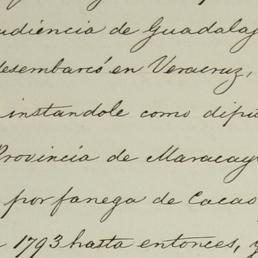 udiencia de Guadalaj
desembarcó en Veracruz,
instandole como dipu
Provincia de Maracay
por fanega de Cacao
1793 hasta entonces, y